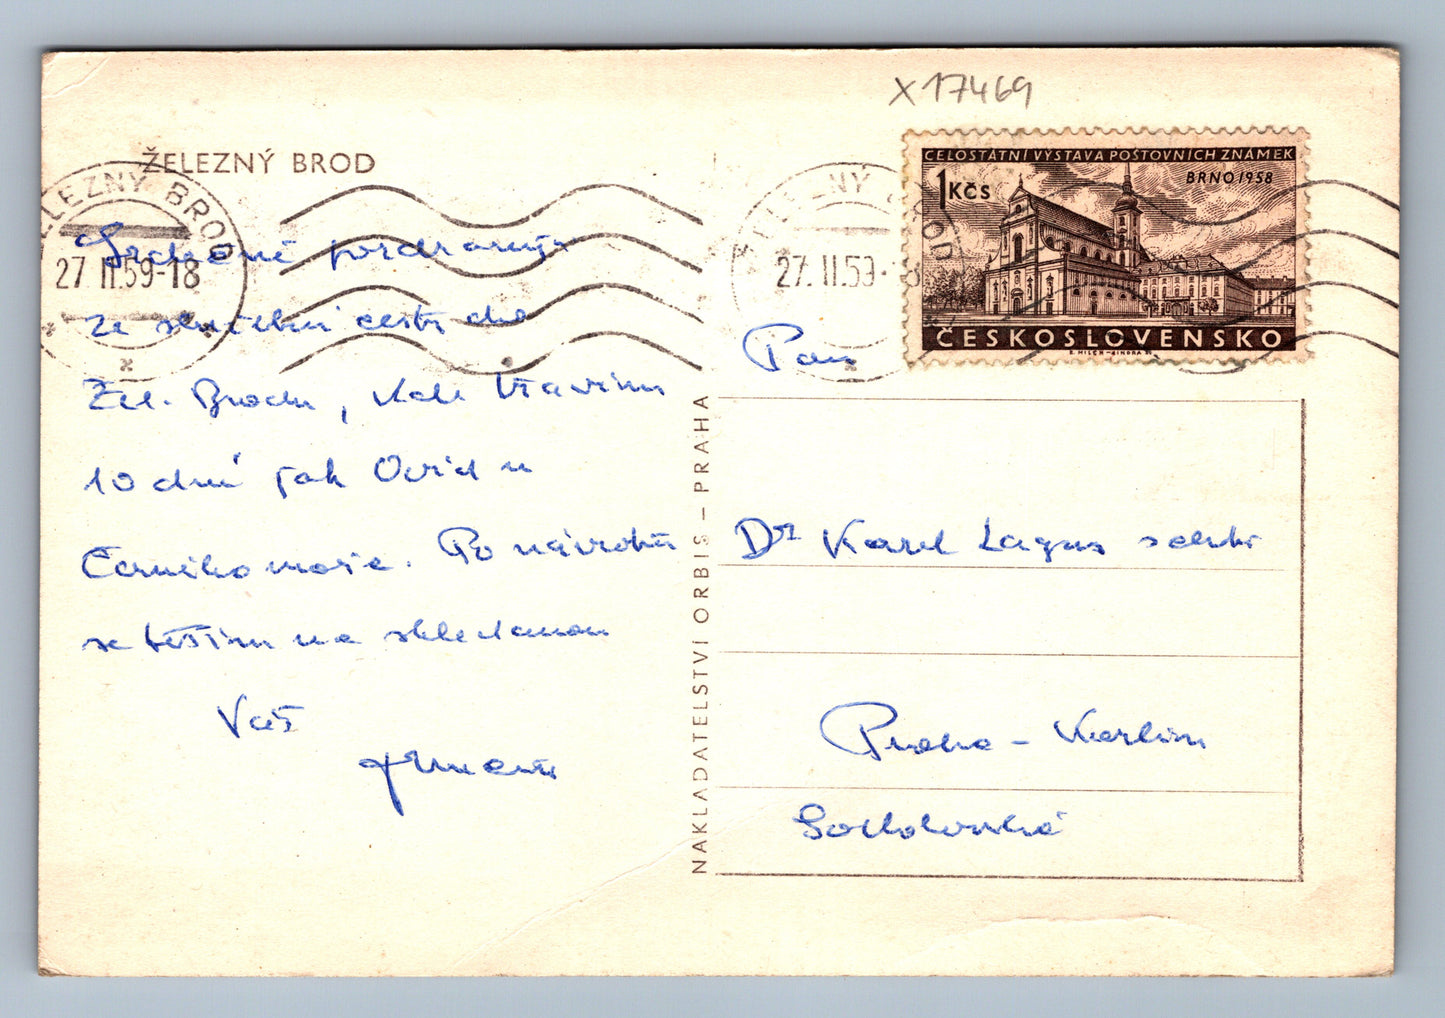 X 17469
ŽELEZNÝ BROD
ŽELEZNÝ BROD
27.II.59-18
ŽELEZNÝ BROD
27.II.59-18
CELOSTÁTNÍ VÝSTAVA POŠTOVNÍCH ZNÁMEK
BRNO 1958
1 KČS
ČESKOSLOVENSKO
Srdečné pozdravy
ze služební cesty do
Žel. Brodu, kde trávím
10 dní jak Ovid u
Černého moře. Po návratu
se těším na shledanou
Váš
NAKLADATELSTVÍ ORBIS – PRAHA
Pan
Dr Karel Lagus
Praha – Karlín
Sokolovská